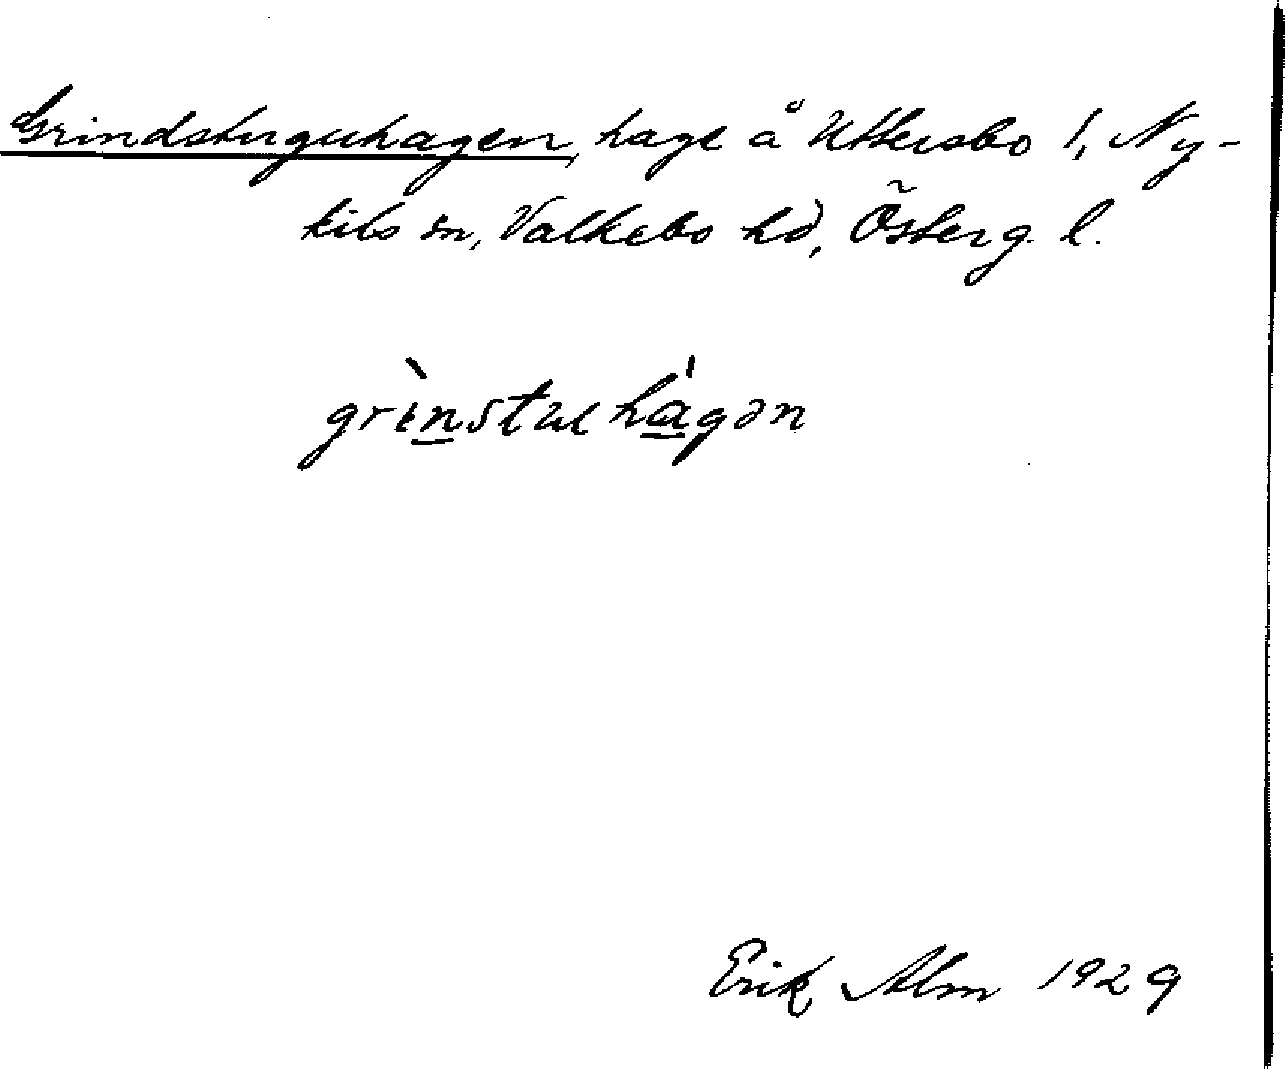 Grindstuguhagen, hage å Uttersbo 1, Ny-
kils sn, Valkebo hd, Österg. l.
grìnstuɯhágən
Erik Alm 1929